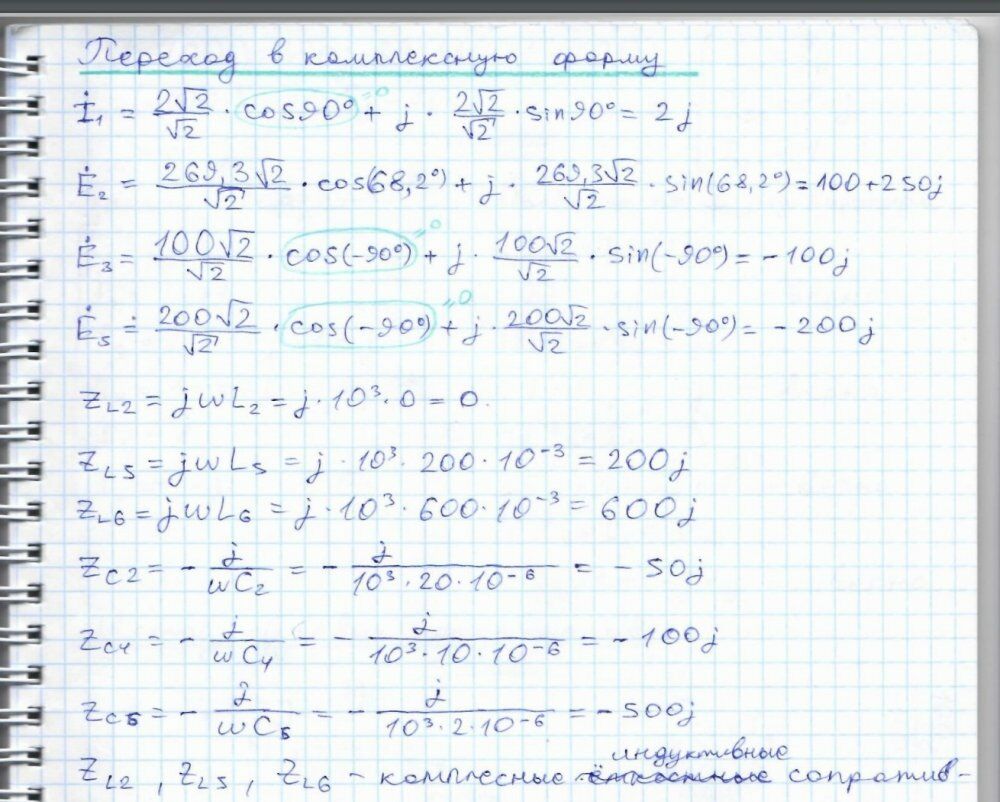 Переход в комплексную форму
İ₁ = 2√2/√2 · cos90° + j · 2√2/√2 · sin90° = 2j
=0
Ė₂ = 269,3√2/√2 · cos(68,2°) + j · 269,3√2/√2 · sin(68,2°) = 100 + 250j
Ė₃ = 100√2/√2 · cos(-90°) + j · 100√2/√2 · sin(-90°) = -100j
=0
Ė₅ = 200√2/√2 · cos(-90°) + j · 200√2/√2 · sin(-90°) = -200j
=0
Z_L2 = jwL₂ = j · 10³ · 0 = 0.
Z_L5 = jwL₅ = j · 10³ · 200 · 10⁻³ = 200j
Z_L6 = jwL₆ = j · 10³ · 600 · 10⁻³ = 600j
Z_C2 = - j/wC₂ = - j/10³ · 20 · 10⁻⁶ = - 50j
Z_C4 = - j/wC₄ = - j/10³ · 10 · 10⁻⁶ = - 100j
Z_C5 = - j/wC₅ = - j/10³ · 2 · 10⁻⁶ = - 500j
индуктивные
Z_L2, Z_L5, Z_L6 - комплесные ёмкостные сопратив-